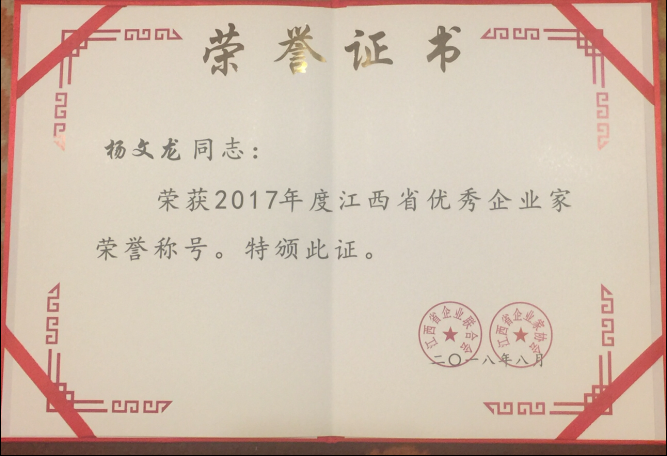 荣誉证书
杨文龙同志：
荣获2017年度江西省优秀企业家
荣誉称号。特颁此证。
江西省企业联合会
江西省企业家协会
二〇一八年八月